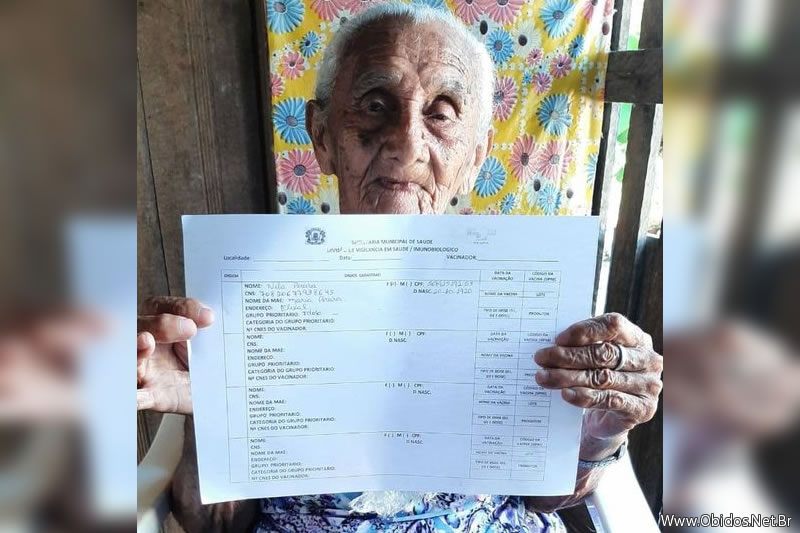 SECRETARIA MUNICIPAL DE SAÚDE
VIGILÂNCIA EM SAÚDE / IMUNOBIOLÓGICO
Localidade: Data: VACINADOR:
ORDEM DATA DA VACINAÇÃO CÓDIGO DA VACINA (SIPNI)
NOME: Nila Pereira F( ) M ( ) CPF:
CNS: D.NASC: 20-10-1920
NOME DA MAE: Maria Pereira NOME DA VACINA LOTE
ENDEREÇO:
GRUPO PRIORITARIO: Idoso TIPO DE DOSE (D1, D2 E DOSE) PRODUTOR
CATEGORIA DO GRUPO PRIORITARIO:
Nº CNES DO VACINADOR:
NOME: F( ) M ( ) CPF: DATA DA VACINAÇÃO CÓDIGO DA VACINA (SIPNI)
CNS: D.NASC.
NOME DA MAE: NOME DA VACINA LOTE
ENDEREÇO:
GRUPO PRIORITARIO: TIPO DE DOSE (D1, D2 E DOSE) PRODUTOR
CATEGORIA DO GRUPO PRIORITARIO:
Nº CNES DO VACINADOR:
NOME: F( ) M ( ) CPF: DATA DA VACINAÇÃO CÓDIGO DA VACINA (SIPNI)
CNS: D.NASC.
NOME DA MAE: NOME DA VACINA LOTE
ENDEREÇO:
GRUPO PRIORITARIO: TIPO DE DOSE (D1, D2 E DOSE) PRODUTOR
CATEGORIA DO GRUPO PRIORITARIO:
Nº CNES DO VACINADOR:
NOME: F( ) M ( ) CPF: DATA DA VACINAÇÃO CÓDIGO DA VACINA (SIPNI)
CNS: D.NASC.
NOME DA MAE:
ENDEREÇO:
GRUPO PRIORITARIO: TIPO DE DOSE (D1, D2 E DOSE) PRODUTOR
CATEGORIA DO GRUPO PRIORITARIO:
Nº CNES DO VACINADOR:
Www.Obidos.Net.Br